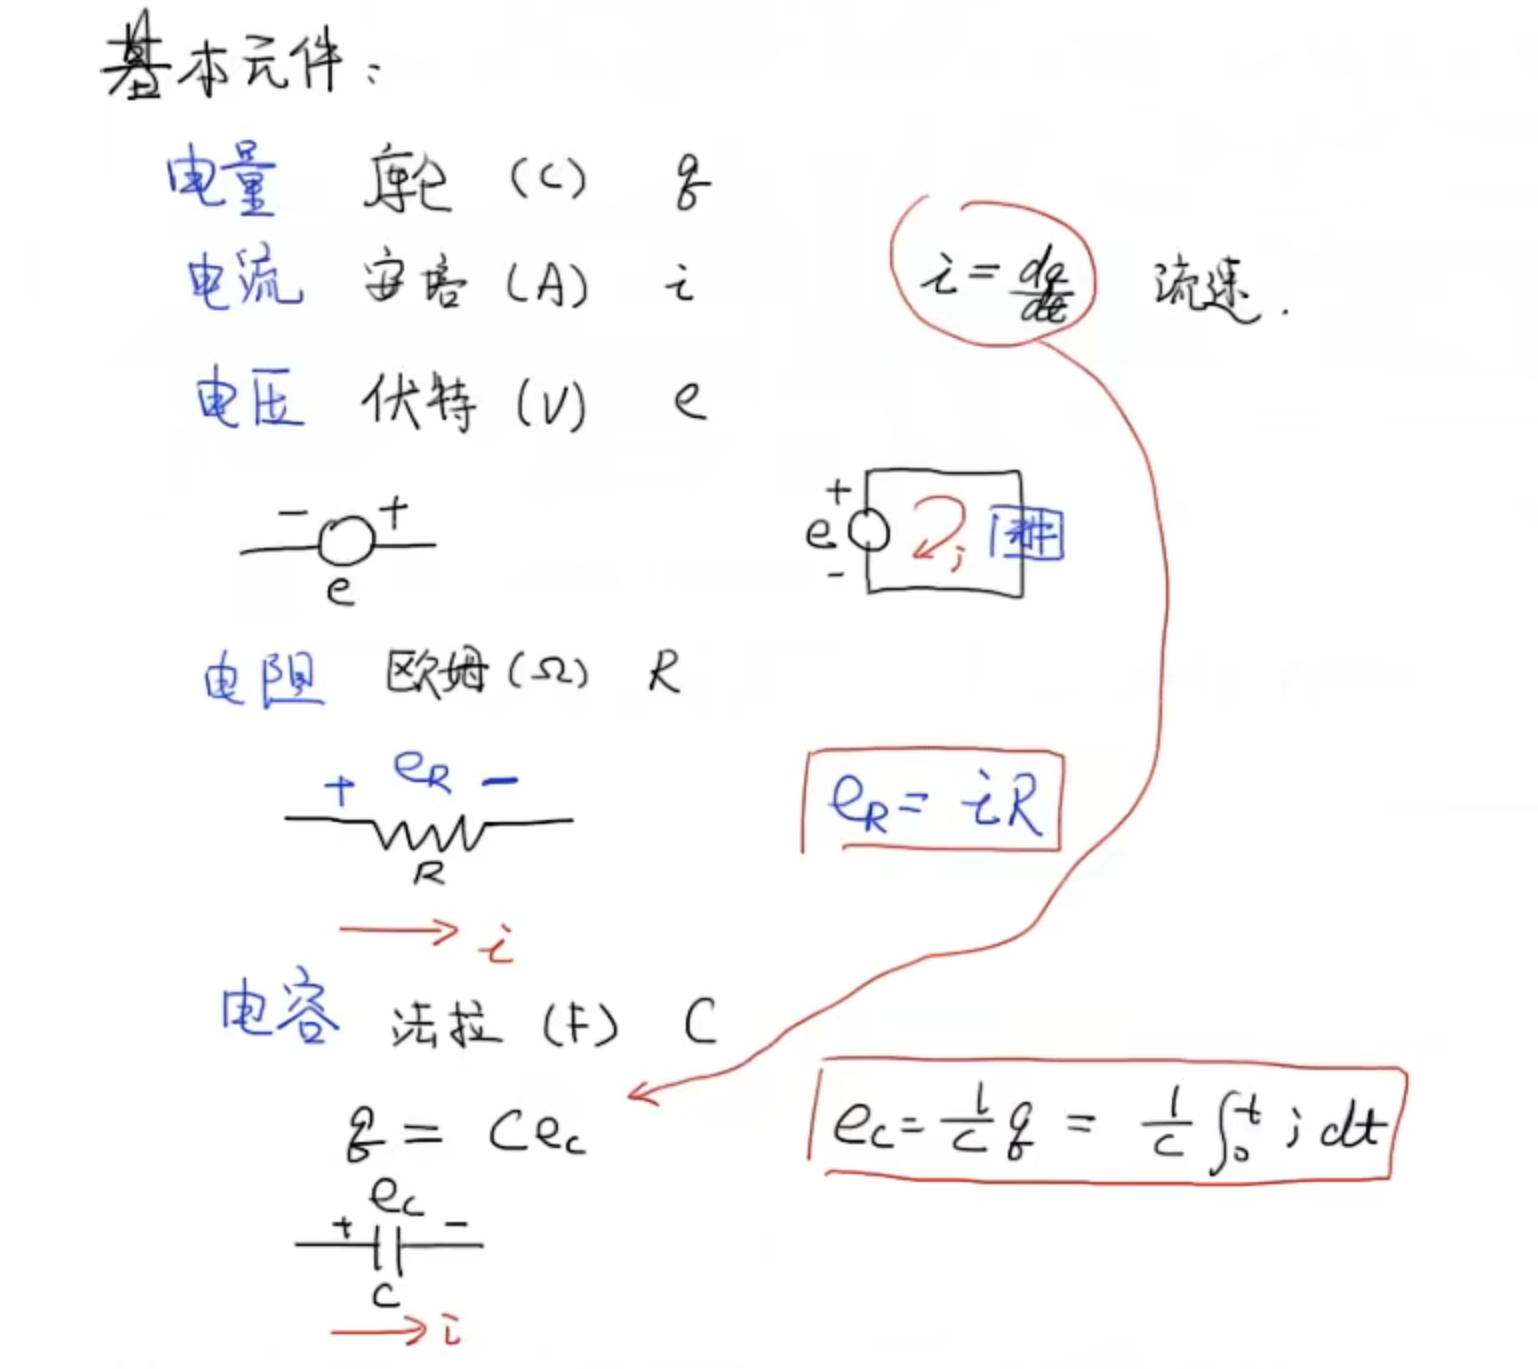 基本元件：
电量 库仑 (C) q
电流 安培 (A) i i = dq/dt 流速.
电压 伏特 (V) e
- + e
+ e - i 元件
电阻 欧姆 (Ω) R
+ eR -
R
eR = iR
i
电容 法拉 (F) C
q = CeC
eC = 1/C q = 1/C ∫₀ᵗ i dt
eC
+ -
C
i